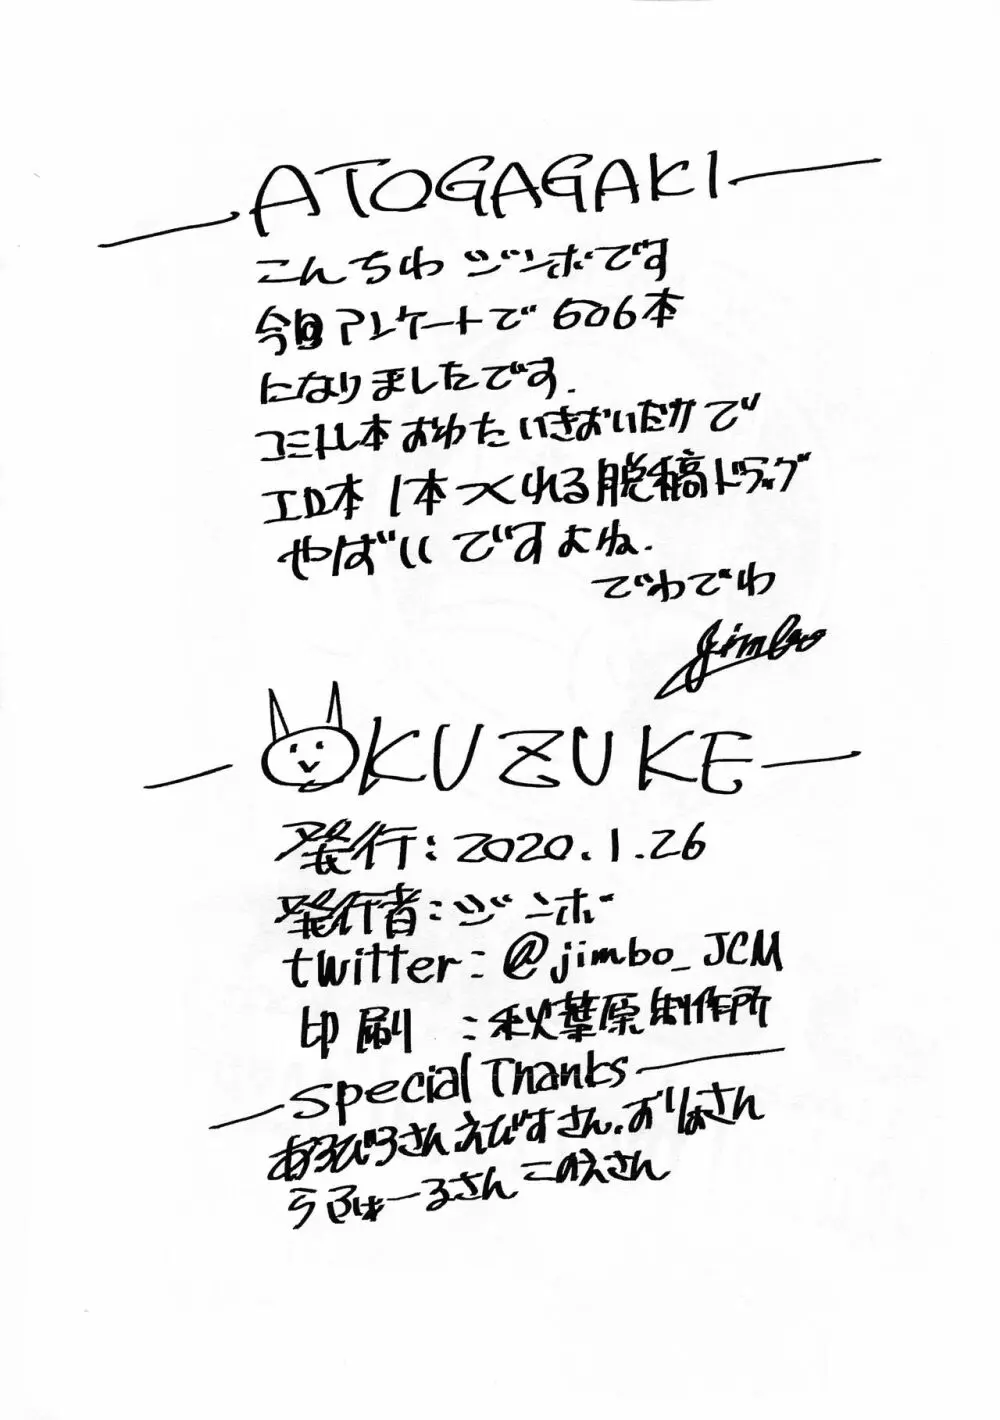 ATOGAGAKI
こんちわ ジンボです
今回アンケートで 606本
になりましたです.
コミトレ本おわた いきおいだかで
エロ本 1本つくれる脱稿ドラッグ
やばいですよね.
でわでわ
jimbo
OKUZUKE
発行:2020.1.26
発行者:ジンボ
twitter:@jimbo_JCM
印刷 :秋葉原制作所
Special Thanks
あろひろさん えびすさん. おりょさん
うるふぁーるさん このえさん